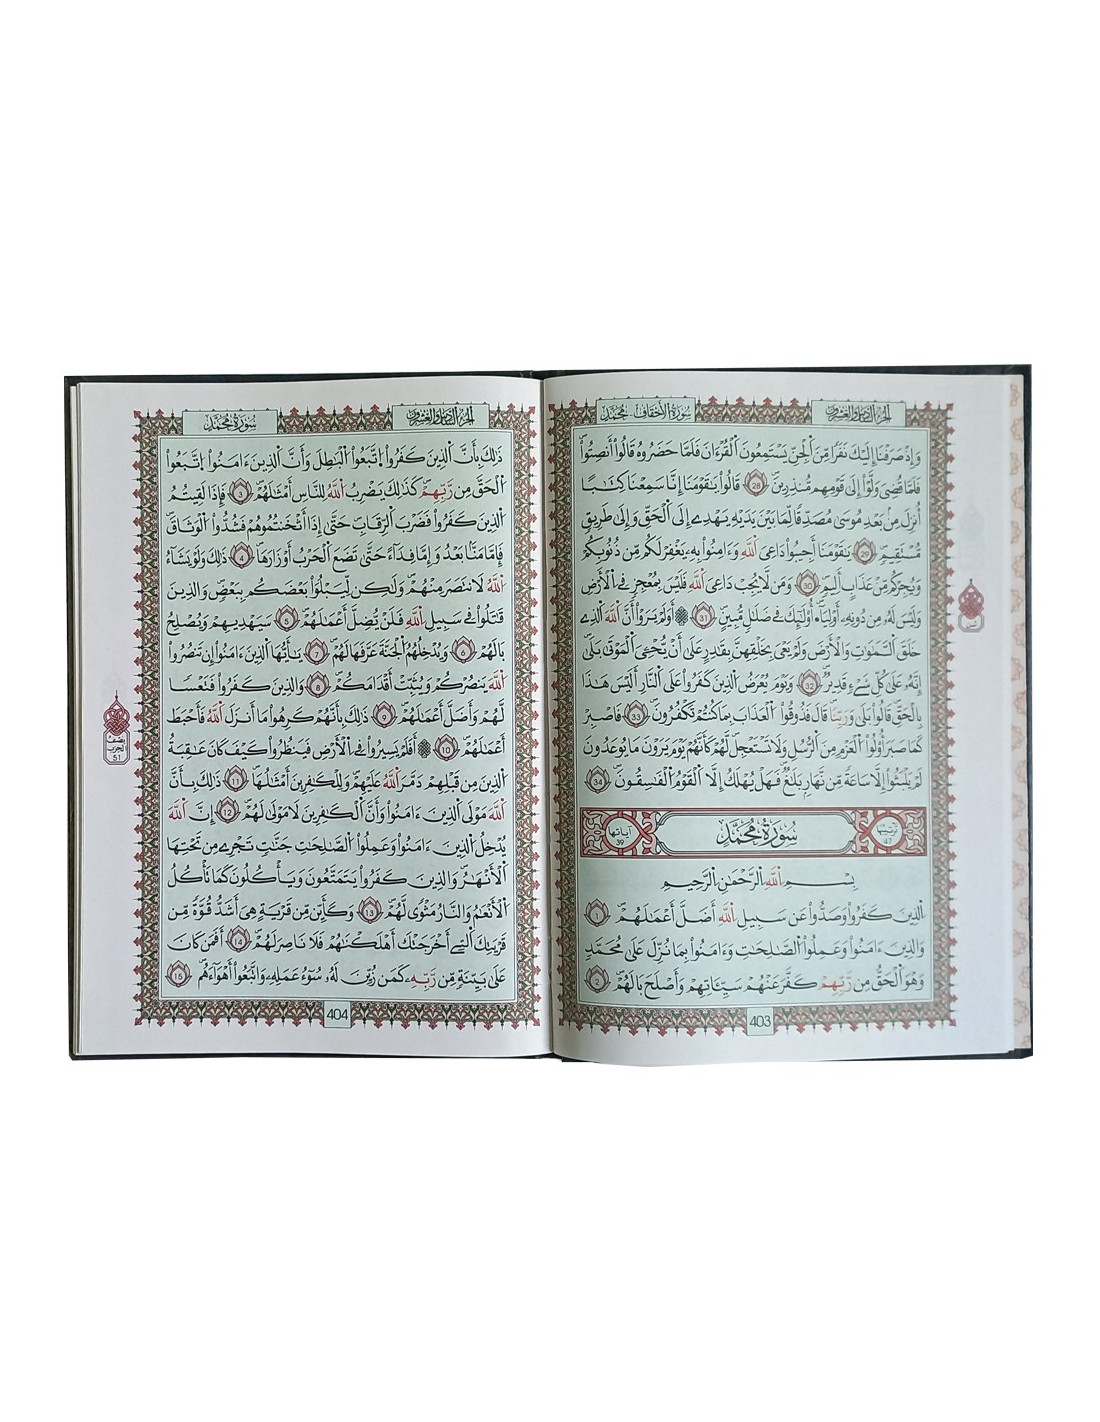 سورة الأحقاف - محمد
الجزء السادس والعشرون
وَإِذْ صَرَفْنَا إِلَيْكَ نَفَرًا مِّنَ الْجِنِّ يَسْتَمِعُونَ الْقُرْءَانَ فَلَمَّا حَضَرُوهُ قَالُوا أَنصِتُوا
فَلَمَّا قُضِيَ وَلَّوْا إِلَى قَوْمِهِم مُّنذِرِينَ 28 قَالُوا يَٰقَوْمَنَا إِنَّا سَمِعْنَا كِتَٰبًا
أُنزِلَ مِنۢ بَعْدِ مُوسَى مُصَدِّقًا لِّمَا بَيْنَ يَدَيْهِ يَهْدِي إِلَى الْحَقِّ وَإِلَى طَرِيقٍ
مُّسْتَقِيمٍ 29 يَٰقَوْمَنَا أَجِيبُوا دَاعِيَ اللَّهِ وَءَامِنُوا بِهِ يَغْفِرْ لَكُم مِّن ذُنُوبِكُمْ
وَيُجِرْكُم مِّنْ عَذَابٍ أَلِيمٍ 30 وَمَن لَّا يُجِبْ دَاعِيَ اللَّهِ فَلَيْسَ بِمُعْجِزٍ فِي الْأَرْضِ
وَلَيْسَ لَهُ مِن دُونِهِ أَوْلِيَاءُ أُوْلَٰئِكَ فِي ضَلَٰلٍ مُّبِينٍ 31 أَوَلَمْ يَرَوْا أَنَّ اللَّهَ الَّذِي
خَلَقَ السَّمَٰوَٰتِ وَالْأَرْضَ وَلَمْ يَعْيَ بِخَلْقِهِنَّ بِقَٰدِرٍ عَلَى أَنْ يُّحْيِيَ الْمَوْتَى بَلَى
إِنَّهُ عَلَى كُلِّ شَيْءٍ قَدِيرٌ 32 وَيَوْمَ يُعْرَضُ الَّذِينَ كَفَرُوا عَلَى النَّارِ أَلَيْسَ هَٰذَا
بِالْحَقِّ قَالُوا بَلَى وَرَبِّنَا قَالَ فَذُوقُوا الْعَذَابَ بِمَا كُنتُمْ تَكْفُرُونَ 33 فَاصْبِرْ
كَمَا صَبَرَ أُوْلُوا الْعَزْمِ مِنَ الرُّسُلِ وَلَا تَسْتَعْجِل لَّهُمْ كَأَنَّهُمْ يَوْمَ يَرَوْنَ مَا يُوعَدُونَ
لَمْ يَلْبَثُوا إِلَّا سَاعَةً مِّن نَّهَارٍ بَلَٰغٌ فَهَلْ يُهْلَكُ إِلَّا الْقَوْمُ الْفَٰسِقُونَ 34
ترتيبها 47
سُورَةُ مُحَمَّدٍ
آياتها 39
بِسْمِ اللَّهِ الرَّحْمَٰنِ الرَّحِيمِ
الَّذِينَ كَفَرُوا وَصَدُّوا عَن سَبِيلِ اللَّهِ أَضَلَّ أَعْمَٰلَهُمْ 1
وَالَّذِينَ ءَامَنُوا وَعَمِلُوا الصَّٰلِحَٰتِ وَءَامَنُوا بِمَا نُزِّلَ عَلَى مُحَمَّدٍ
وَهُوَ الْحَقُّ مِن رَّبِّهِمْ كَفَّرَ عَنْهُمْ سَيِّـَٔاتِهِمْ وَأَصْلَحَ بَالَهُمْ 2
403
سورة محمد
الجزء السادس والعشرون
ذَٰلِكَ بِأَنَّ الَّذِينَ كَفَرُوا اتَّبَعُوا الْبَٰطِلَ وَأَنَّ الَّذِينَ ءَامَنُوا اتَّبَعُوا
الْحَقَّ مِن رَّبِّهِمْ كَذَٰلِكَ يَضْرِبُ اللَّهُ لِلنَّاسِ أَمْثَٰلَهُمْ 3 فَإِذَا لَقِيتُمُ
الَّذِينَ كَفَرُوا فَضَرْبَ الرِّقَابِ حَتَّى إِذَا أَثْخَنتُمُوهُمْ فَشُدُّوا الْوَثَاقَ
فَإِمَّا مَنًّا بَعْدُ وَإِمَّا فِدَاءً حَتَّى تَضَعَ الْحَرْبُ أَوْزَارَهَا 4 ذَٰلِكَ وَلَوْ يَشَاءُ
اللَّهُ لَانتَصَرَ مِنْهُمْ وَلَٰكِن لِّيَبْلُوَا بَعْضَكُم بِبَعْضٍ وَالَّذِينَ
قَٰتَلُوا فِي سَبِيلِ اللَّهِ فَلَنْ يُّضِلَّ أَعْمَٰلَهُمْ 5 سَيَهْدِيهِمْ وَيُصْلِحُ
بَالَهُمْ 6 وَيُدْخِلُهُمُ الْجَنَّةَ عَرَّفَهَا لَهُمْ 7 يَٰأَيُّهَا الَّذِينَ ءَامَنُوا إِن تَنصُرُوا
اللَّهَ يَنصُرْكُمْ وَيُثَبِّتَ أَقْدَامَكُمْ 8 وَالَّذِينَ كَفَرُوا فَتَعْسًا
لَّهُمْ وَأَضَلَّ أَعْمَٰلَهُمْ 9 ذَٰلِكَ بِأَنَّهُمْ كَرِهُوا مَا أَنزَلَ اللَّهُ فَأَحْبَطَ
أَعْمَٰلَهُمْ 10 أَفَلَمْ يَسِيرُوا فِي الْأَرْضِ فَيَنظُرُوا كَيْفَ كَانَ عَٰقِبَةُ
الَّذِينَ مِن قَبْلِهِمْ دَمَّرَ اللَّهُ عَلَيْهِمْ وَلِلْكَٰفِرِينَ أَمْثَٰلُهَا 11 ذَٰلِكَ بِأَنَّ
اللَّهَ مَوْلَى الَّذِينَ ءَامَنُوا وَأَنَّ الْكَٰفِرِينَ لَا مَوْلَى لَهُمْ 12 إِنَّ اللَّهَ
يُدْخِلُ الَّذِينَ ءَامَنُوا وَعَمِلُوا الصَّٰلِحَٰتِ جَنَّٰتٍ تَجْرِي مِن تَحْتِهَا
الْأَنْهَٰرُ وَالَّذِينَ كَفَرُوا يَتَمَتَّعُونَ وَيَأْكُلُونَ كَمَا تَأْكُلُ
الْأَنْعَٰمُ وَالنَّارُ مَثْوًى لَّهُمْ 13 وَكَأَيِّن مِّن قَرْيَةٍ هِيَ أَشَدُّ قُوَّةً مِّن
قَرْيَتِكَ الَّتِي أَخْرَجَتْكَ أَهْلَكْنَٰهُمْ فَلَا نَاصِرَ لَهُمْ 14 أَفَمَن كَانَ
عَلَى بَيِّنَةٍ مِّن رَّبِّهِ كَمَن زُيِّنَ لَهُ سُوءُ عَمَلِهِ وَاتَّبَعُوا أَهْوَاءَهُم 15
نصف
الحزب
51
404